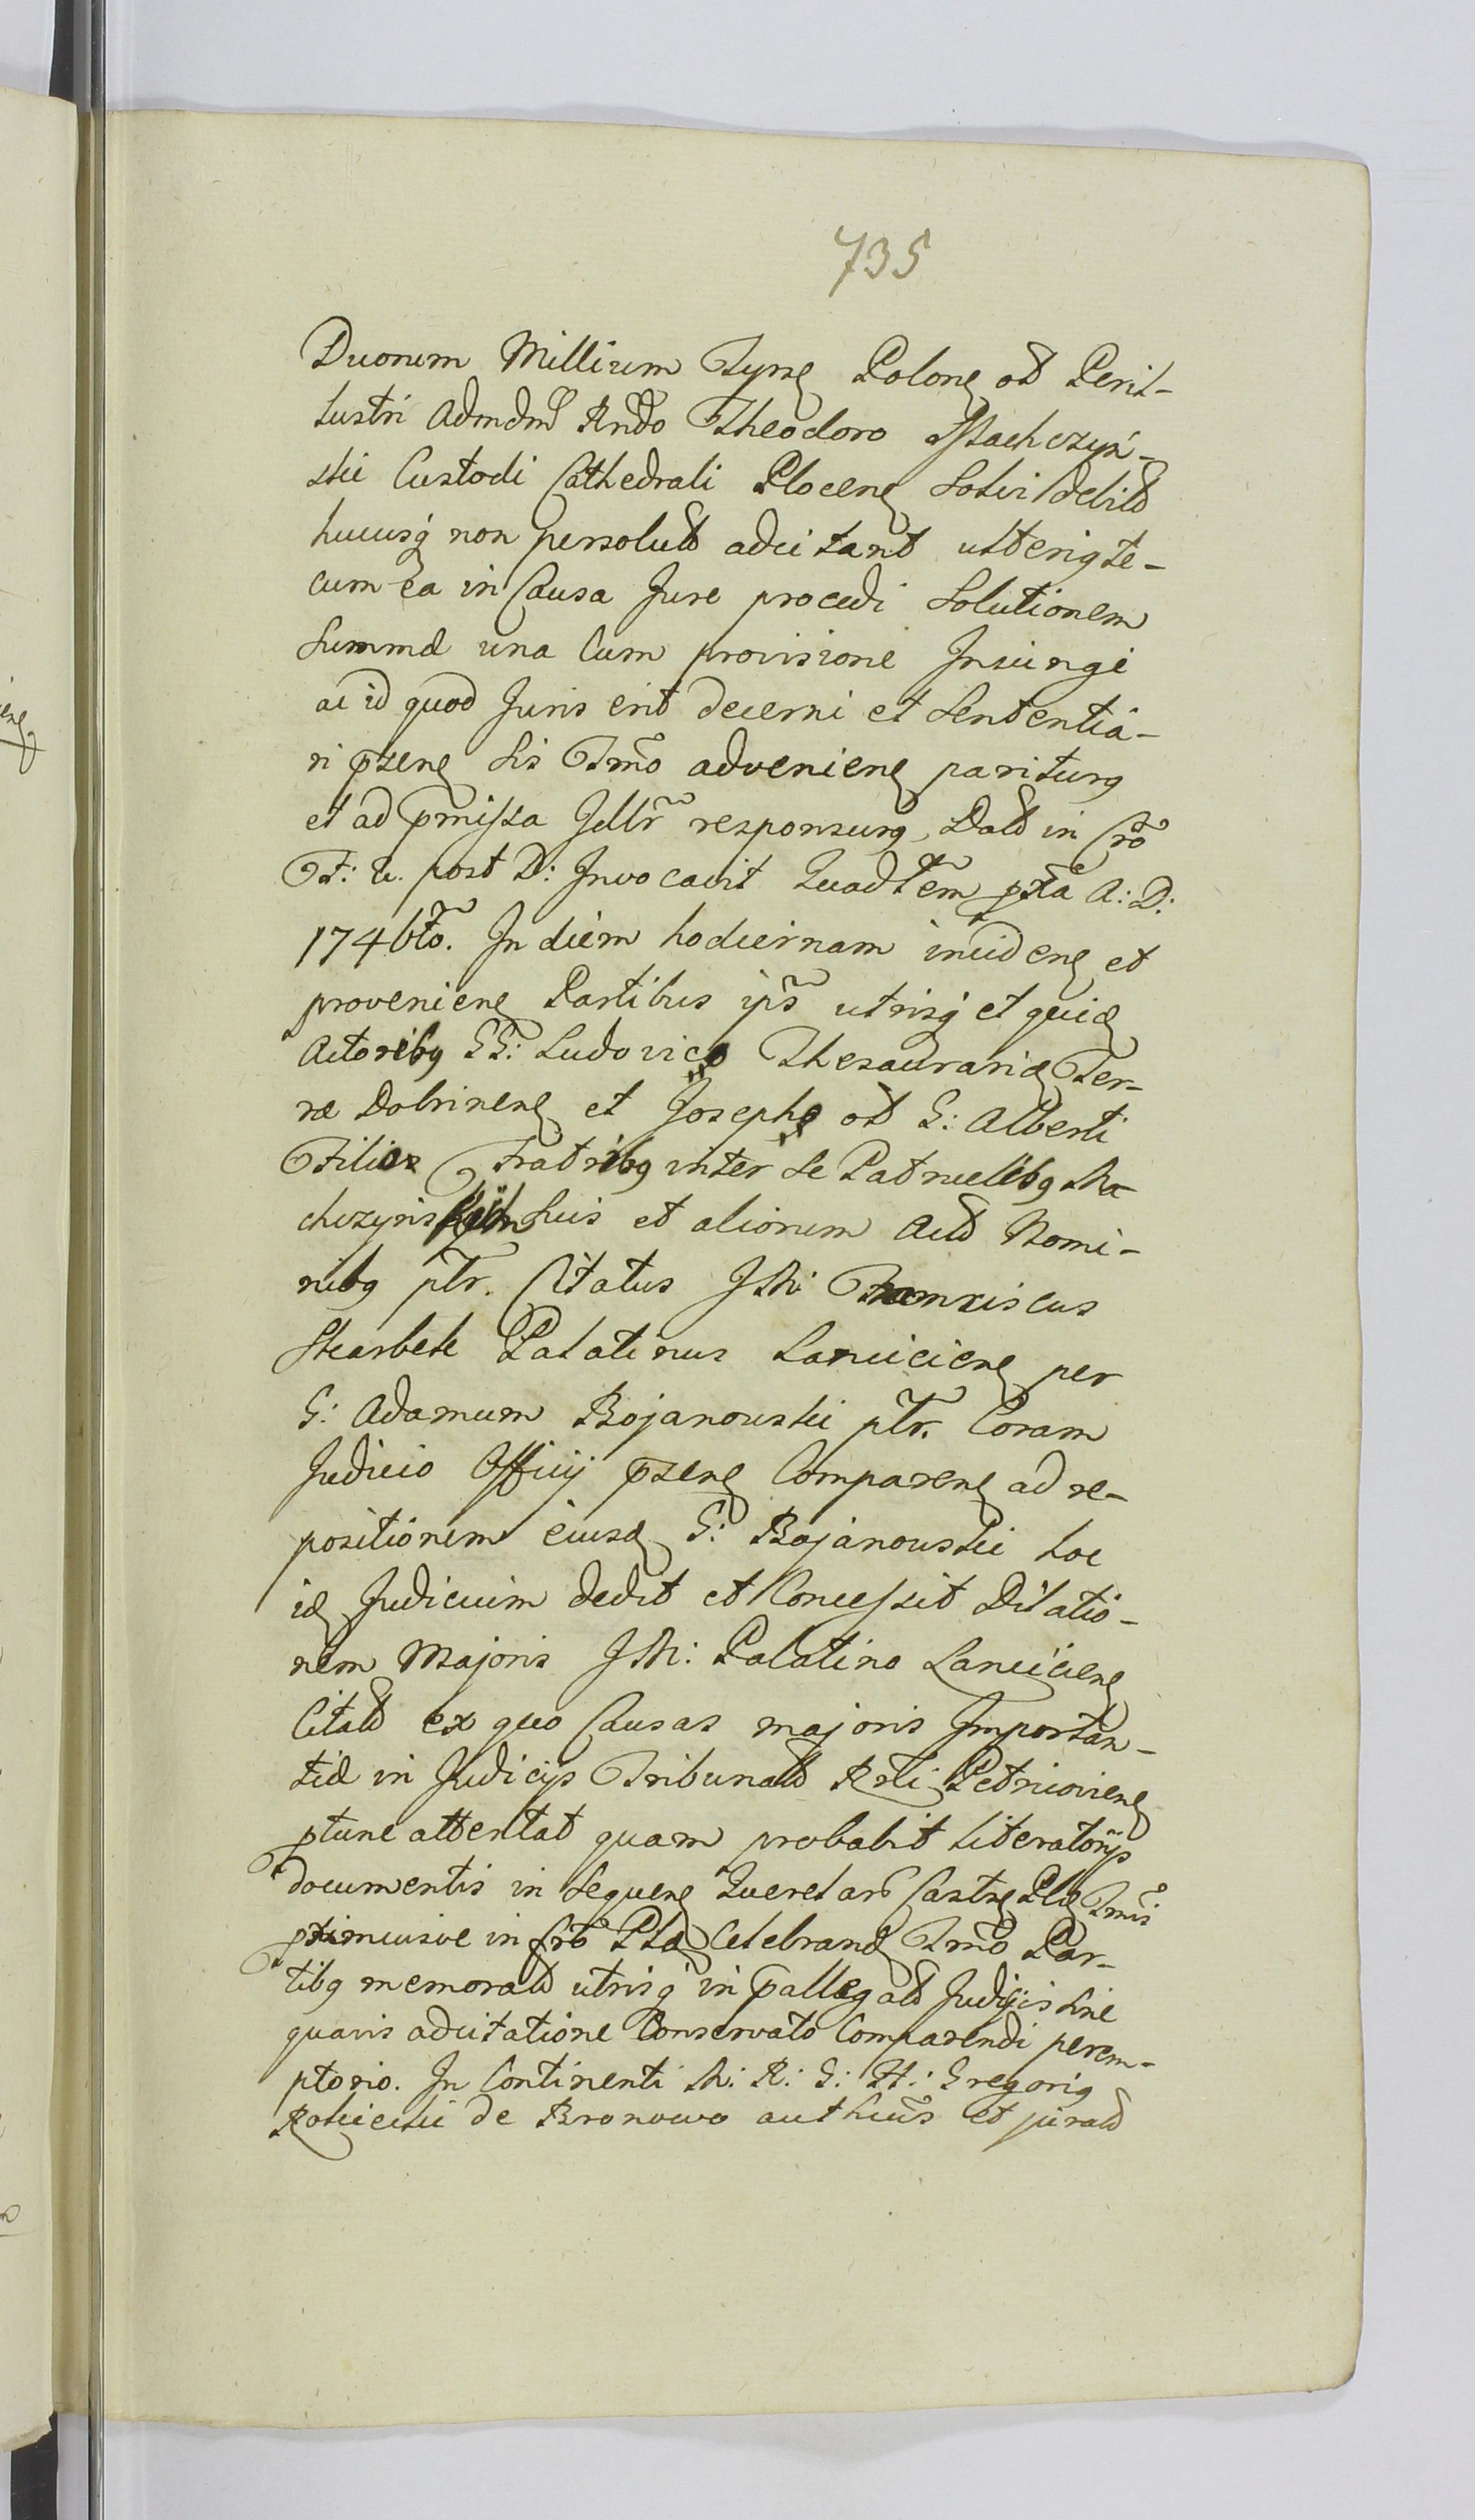 735
Duorum Millium Tynf Polon od Peril-
lustri Admdm Rndo Theodoro Machczyń-
ski Custodi Cathedrali Plocen Solvi debit
hucusq non persolut adcitant utterig te-
cum ea in Causa Jure procedi Solutionem
Summæ una Cum provisione Injungi
ac id quod Juris erit decerni et Sententia-
ri pzen Sis Tmo advenien pariturg
et ad pmissa Jdlr responsurg. Dat in Cro
F: V. post D: Invocavit Quadtem pta A: D:
1746to. In diem hodiernam inciden et
provenien Partibus ips utrisq et quid
Actoribg GG: Ludovico Thesaurarid Ter-
ræ Dobrinen et Josepho od G: Alberti
Filior Fratribg inter se Patruelibg Ma-
chczyns Suis et aliorum Act Nomi-
nibg ptr. Citatus JM: Franciscus
Skarbek Palatinus Lancicien per
G: Adamum Bojanowski ptr. Coram
Judicio Officij pzen Comparen ad re-
positionem eiusd G: Bojanowski hoc
id Judicium dedit et Concessit Dilatio-
nem Majoris JM: Palatino Lancicien
Citat ex quo Causas majoris Importan-
tiæ in Judicijs Tribunalt Rni Petricovien
ptune attentat quam probabit literatorijs
documentis in Sequen Querelar Castr Plo Tmis
in fro Plo Celebrand Tmo Par-
tibg memorat utrisq in pallegat Judijis Sine
quavis adcitatione Conservato Comparendi perem-
ptorio. In Continenti M: R: G: H: Gregorig
Rościcski de Bronowo auth et jurat